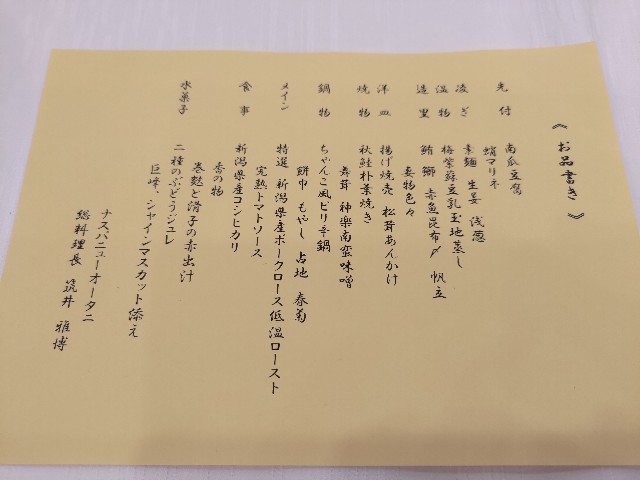 《 お品書き 》
先付 南瓜豆腐
蛸マリネ
凌ぎ 素麺 生姜 浅葱
温物 梅紫蘇豆乳玉地蒸し
造里 鮪 鰤 赤魚昆布〆 帆立
妻物色々
洋皿 揚げ焼売 松茸あんかけ
焼物 秋鮭朴葉焼き
舞茸 神楽南蛮味噌
鍋物 ちゃんこ風ピリ辛鍋
餅巾 もやし 占地 春菊
メイン 特選 新潟県産ポークロース低温ロースト
完熟トマトソース
食事 新潟県産コシヒカリ
香の物
巻麩と滑子の赤出汁
水菓子 二種のぶどうジュレ
巨峰、シャインマスカット添え
ナスパニューオータニ
総料理長 筑井 雅博